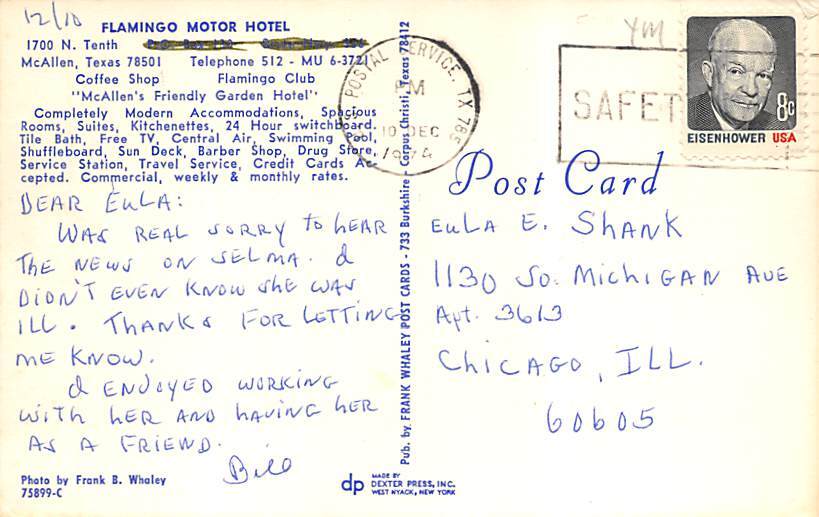 12/10
FLAMINGO MOTOR HOTEL
1700 N. Tenth
McAllen, Texas 78501 Telephone 512 - MU 6-3721
Coffee Shop Flamingo Club
"McAllen's Friendly Garden Hotel"
Completely Modern Accommodations, Spacious
Rooms, Suites, Kitchenettes, 24 Hour switchboard.
Tile Bath, Free TV, Central Air, Swimming Pool,
Shuffleboard, Sun Deck, Barber Shop, Drug Store,
Service Station, Travel Service, Credit Cards Ac-
cepted. Commercial, weekly & monthly rates.
DEAR EULA:
WAS REAL SORRY TO HEAR
THE NEWS ON SELMA. I
DIDN'T EVEN KNOW SHE WAS
ILL. THANKS FOR LETTING
ME KNOW.
I ENJOYED WORKING
WITH HER AND HAVING HER
AS A FRIEND.
Bill
Photo by Frank B. Whaley
75899-C
Pub. by FRANK WHALEY POST CARDS - 733 Burkshire - Corpus Christi, Texas 78412
dp MADE BY
DEXTER PRESS, INC.
WEST NYACK, NEW YORK
POSTAL SERVICE, TX
PM
10 DEC
1974
SAFET
YM
8c
EISENHOWER USA
Post Card
EULA E. SHANK
1130 SO. MICHIGAN AVE
Apt. 3613
CHICAGO, ILL.
60605